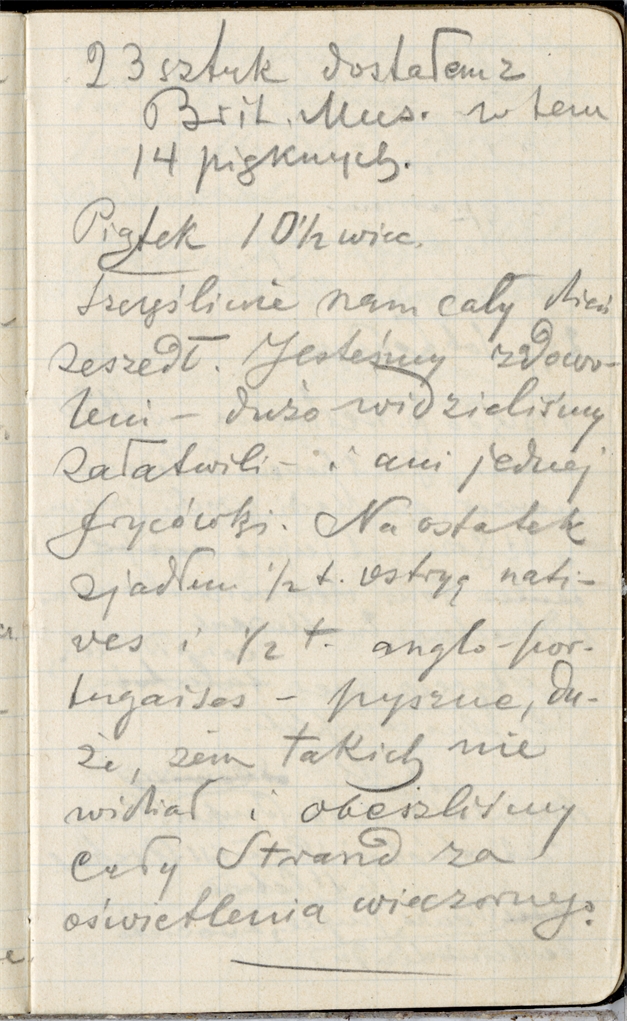 23 sztuk dostałem z
Brit. Mus. w tem
14 pięknych.
Piątek 10½ wiec.
Szczęśliwie nam cały dzień
zeszedł. Jesteśmy zadowo-
leni – dużo widzieliśmy
załatwili – i ani jednej
frycówki. Na ostatek
zjadłem ½ t. ostryg nati-
ves i ½ t. anglo-por-
tugaises – pyszne, du-
że, żem takich nie
widział i obeszliśmy
cały Strand za
oświetlenia wieczornego.